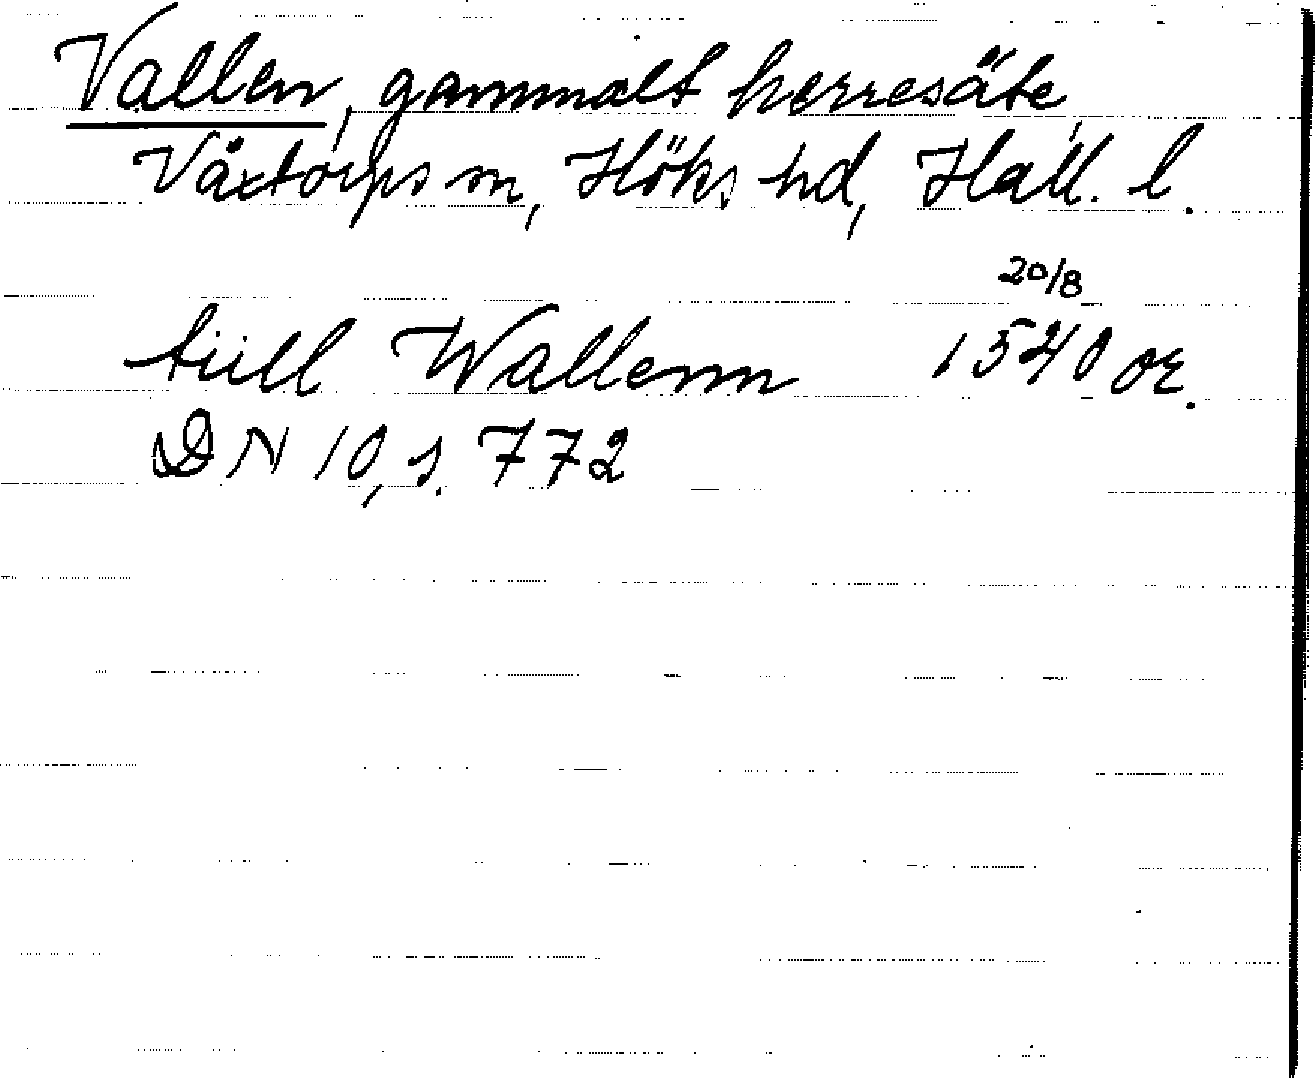 Vallen, gammalt herresäte,
Våxtorps sn, Höks hd, Hall. l.
20/8
tiill Wallenn 1540 or.
DN 10, s. 772